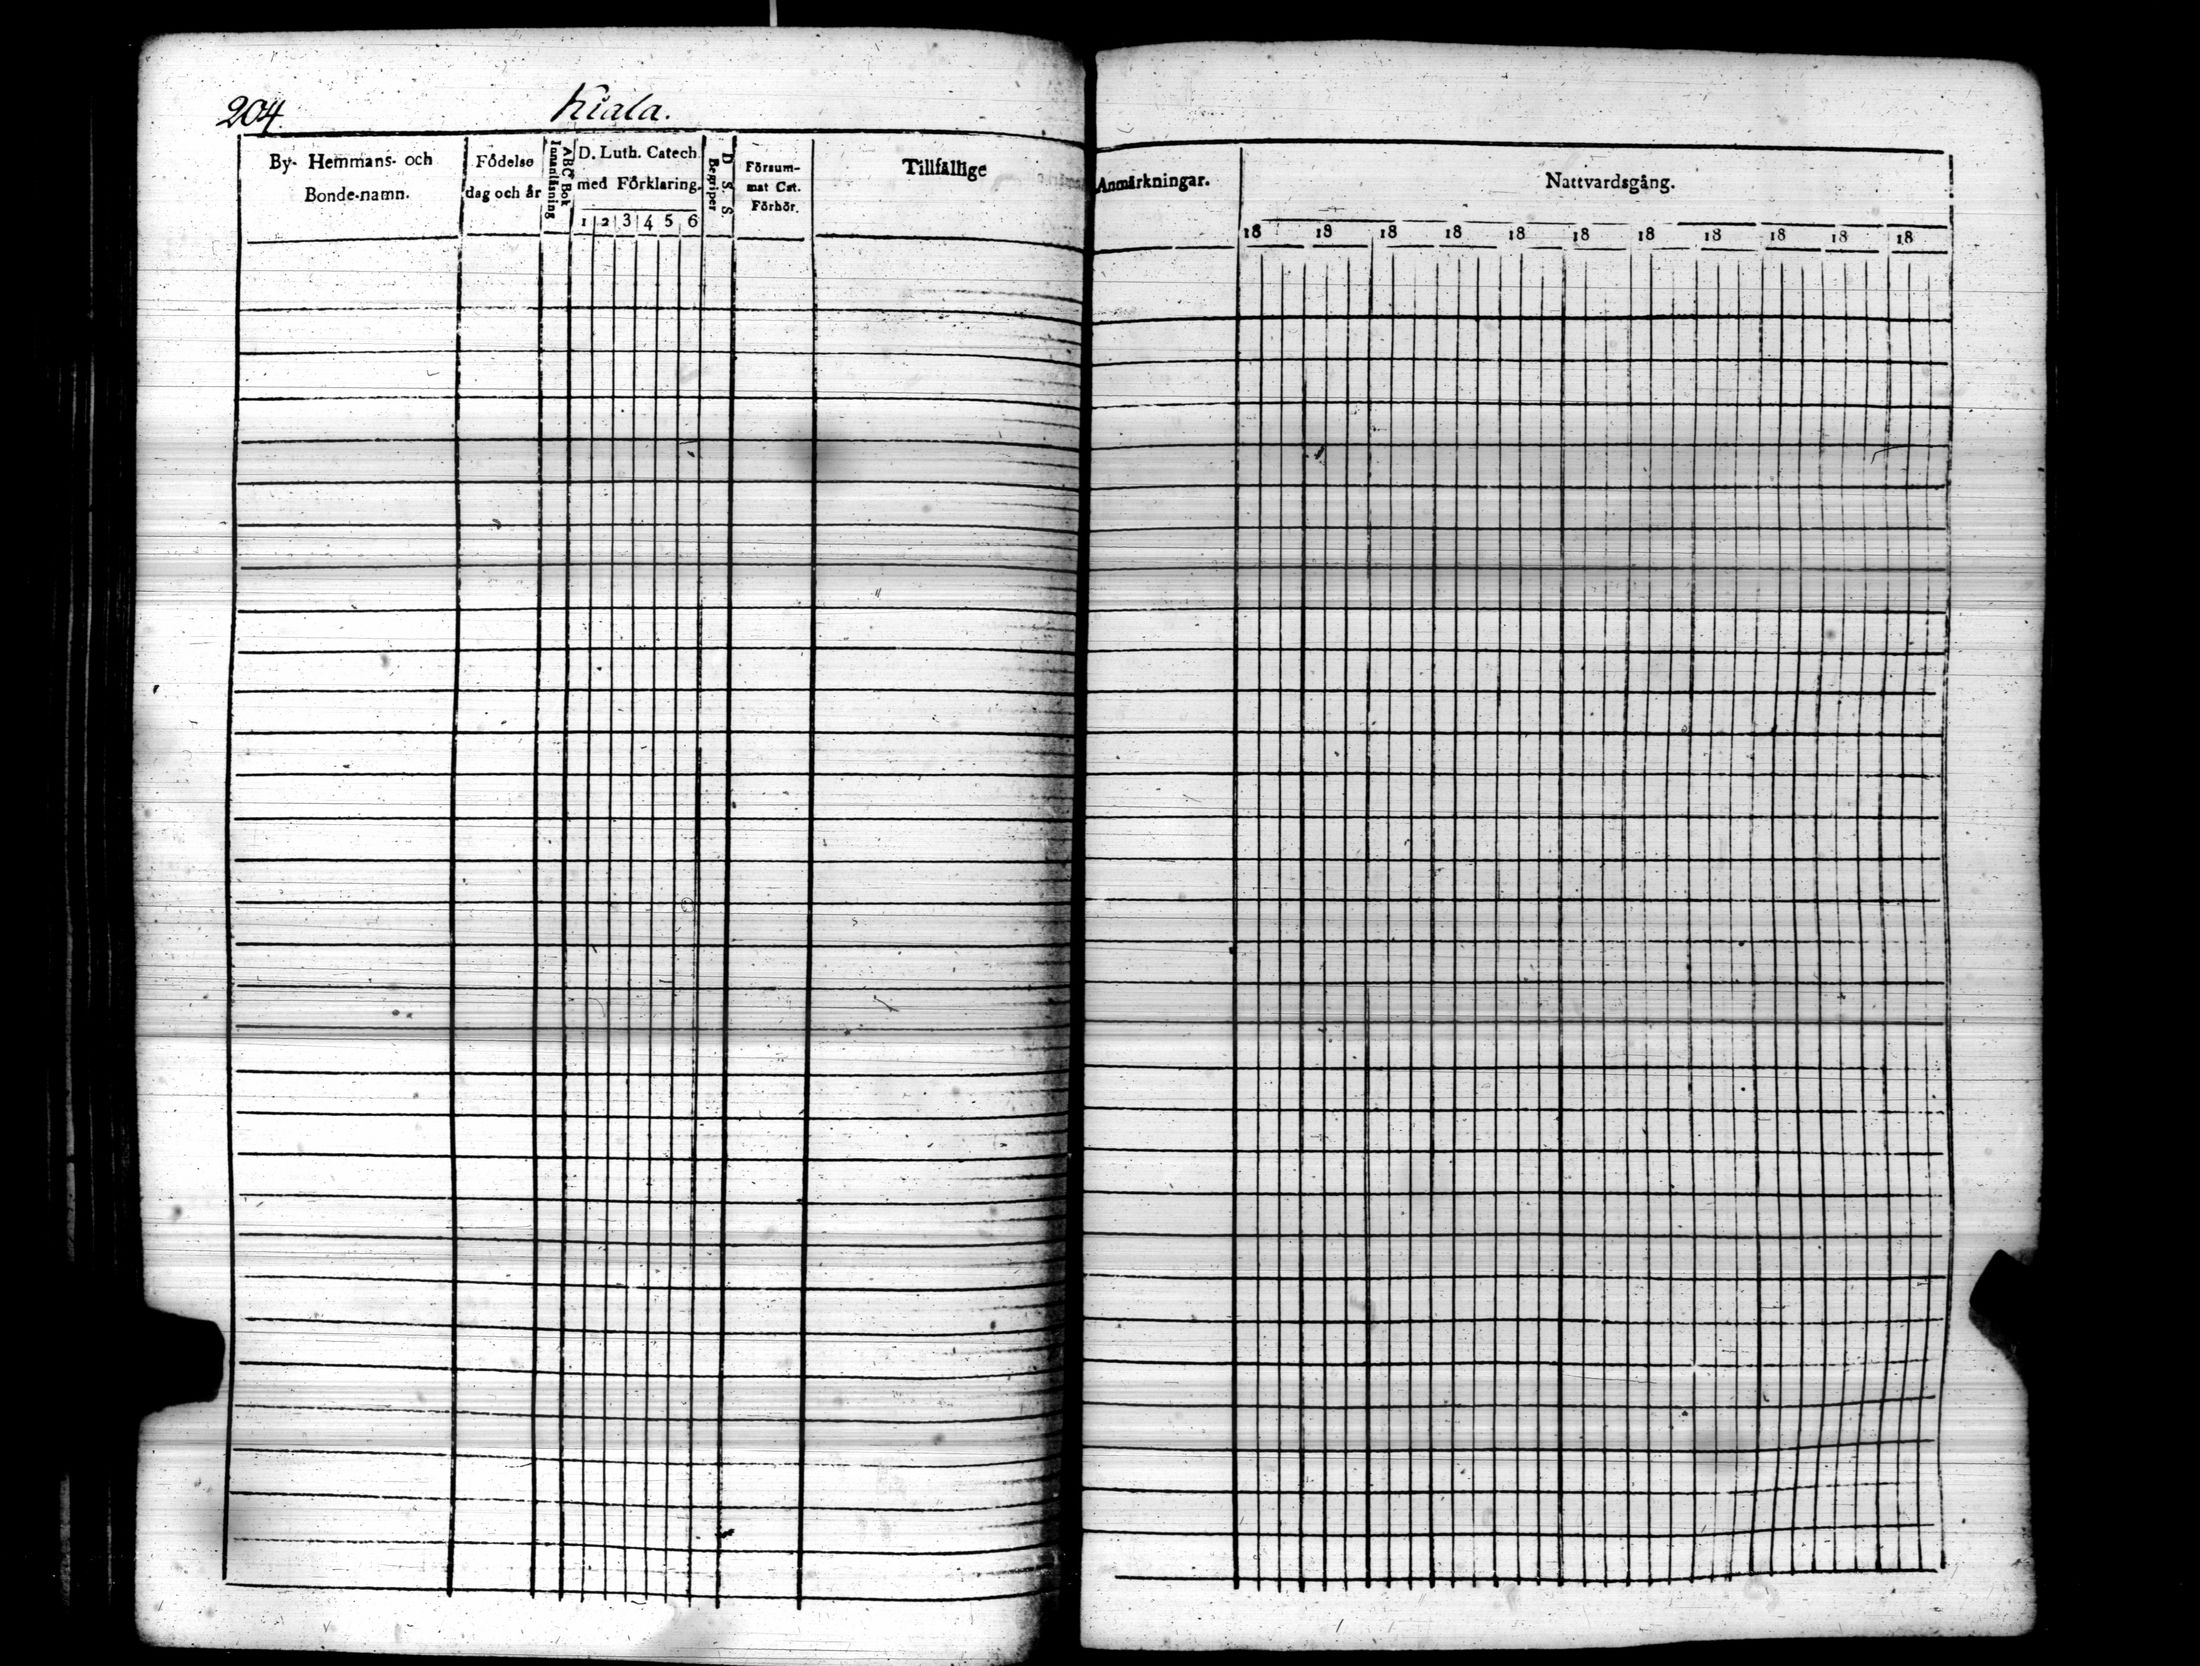 204. Kiala.
By- Hemmans- och
Bonde-namn.
Födelse
dag och år
Innanläsning
ABC Bok
D. Luth. Catech.
med Förklaring.
1 2 3 4 5 6
Begriper
D. S. S
Försum-
mat Cat.
Förhör.
Tillfällige
Anmärkningar.
Nattvardsgång.
18 18 18 18 18 18 18 18 18 18 18